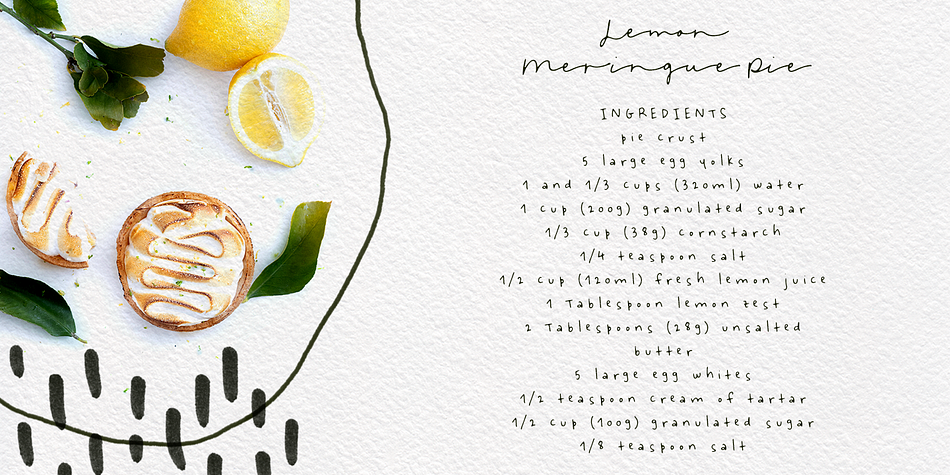 Lemon
Meringue Pie
INGREDIENTS
pie crust
5 large egg yolks
1 and 1/3 cups (320ml) water
1 cup (200g) granulated sugar
1/3 cup (38g) cornstarch
1/4 teaspoon salt
1/2 cup (120ml) fresh lemon juice
1 Tablespoon lemon zest
2 Tablespoons (28g) unsalted
butter
5 large egg whites
1/2 teaspoon cream of tartar
1/2 cup (100g) granulated sugar
1/8 teaspoon salt